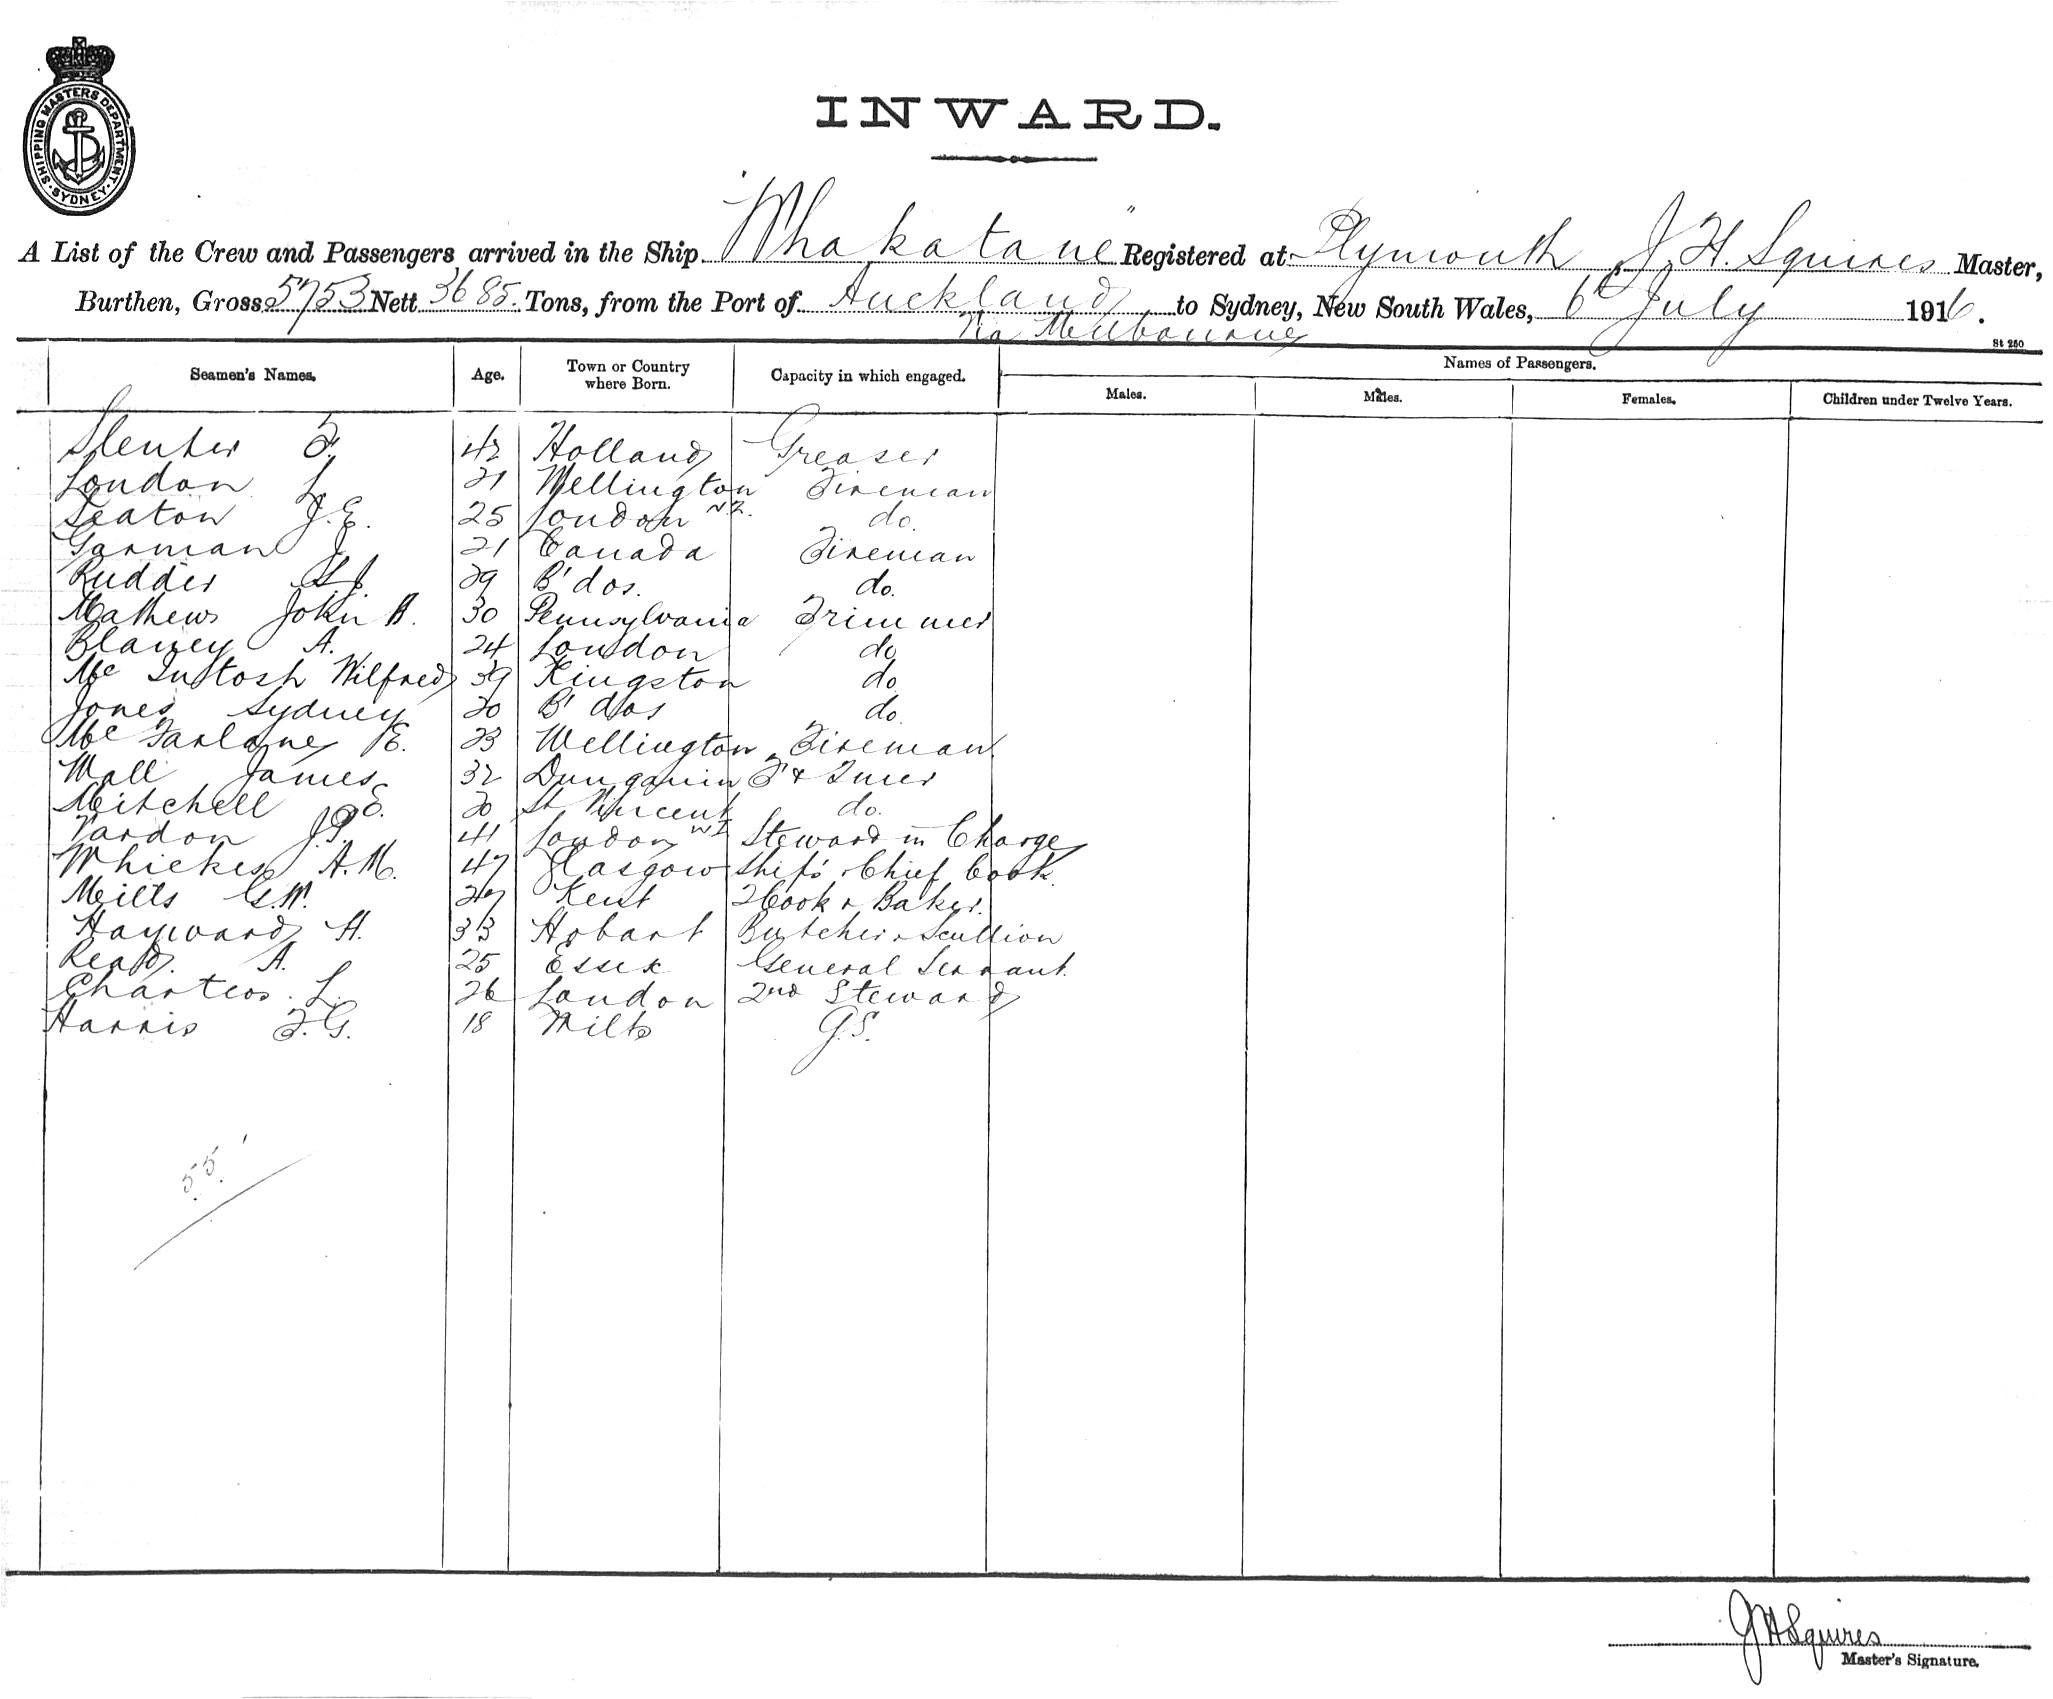 SHIPPING MASTERS DEPARTMENT. SYDNEY.
INWARD.
A List of the Crew and Passengers arrived in the Ship "Whakatane" Registered at Plymouth J. H. Squires Master,
Burthen, Gross 5753 Nett 3685. Tons, from the Port of Auckland to Sydney, New South Wales, 6th July 1916.
Via Melbourne
St 260
Seamen's Names. Age. Town or Country where Born. Capacity in which engaged. Names of Passengers.
Males. Males. Females. Children under Twelve Years.
Slenter F. 42 Holland Greaser
London L 21 Wellington N.Z. Fireman
Seaton J.E. 25 London do.
Garman J 21 Canada Fireman
Rudder S.J. 29 B'dos. do.
Mathews John B. 30 Pennsylvania Trimmer
Blaney A. 24 London do
McIntosh Wilfred 39 Kingston do
Jones Sydney 20 B'dos do.
McFarlane E. 23 Wellington Fireman
Wall James 32 Dungannin F & Tmer
Mitchell E. 20 St Vincent W I do.
Vardon J.P. 41 London Steward in Charge
Whickes A.M. 47 Glasgow Ship's Chief Cook
Mills G.W. 27 Kent 2 Cook & Baker.
Hayward H. 33 Hobart Butcher & Scullion
Read. A. 25 Essex General Servant.
Charters. L. 26 London 2nd Steward
Harris F.G. 18 Wilts G.S.
55
J H Squires
Master's Signature.